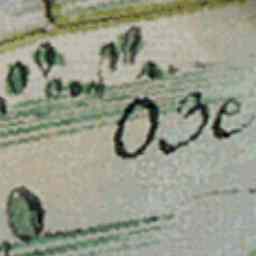 Озе